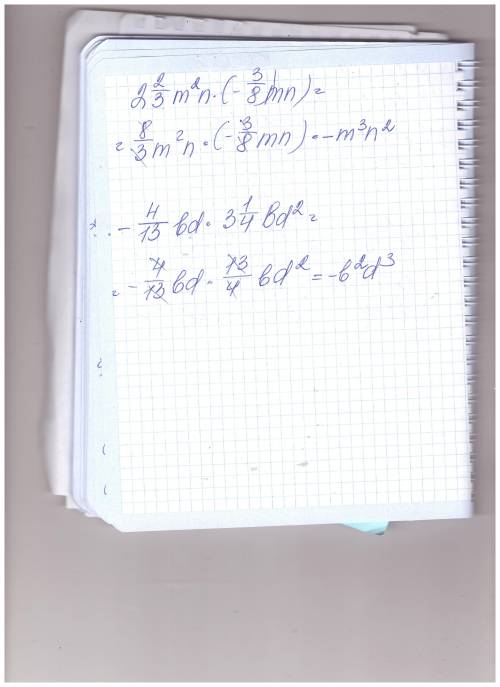 2 2/3 m²n · (- 3/8 mn) =
= 8/3 m²n · (- 3/8 mn) = -m³n²
- 4/13 bd · 3 1/4 bd² =
= - 4/13 bd · 13/4 bd² = -b²d³